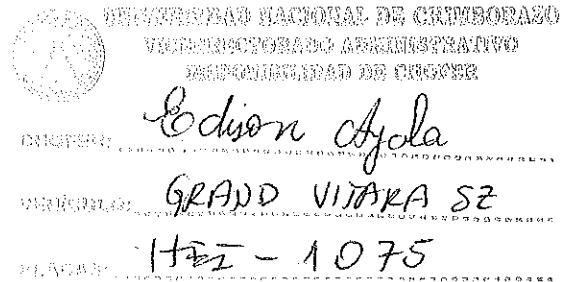 UNIVERSIDAD NACIONAL DE CHIMBORAZO
VICERRECTORADO ADMINISTRATIVO
DISPONIBILIDAD DE CHOFER
CHOFER: Edison Ayala
VEHÍCULO: GRAND VITARA SZ
PLACAS: HEI - 1075